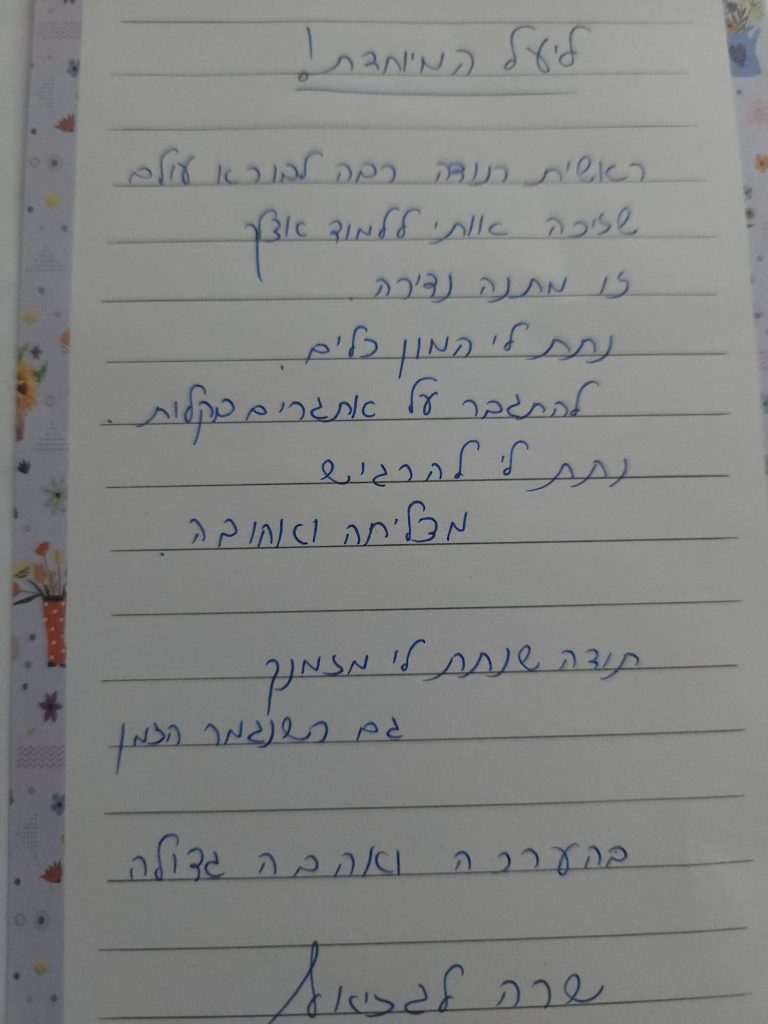 ליעל המיוחדת!
ראשית תודה רבה לבורא עולם
שזיכה אותי ללמוד אצלך
זו מתנה נדירה.
נתת לי המון כלים.
להתגבר על אתגרים בקלות.
נתת לי להרגיש
מצליחה ואהובה.
תודה שנתת לי מזמנך
גם כשנגמר הזמן
בהערכה ואהבה גדולה
שרה